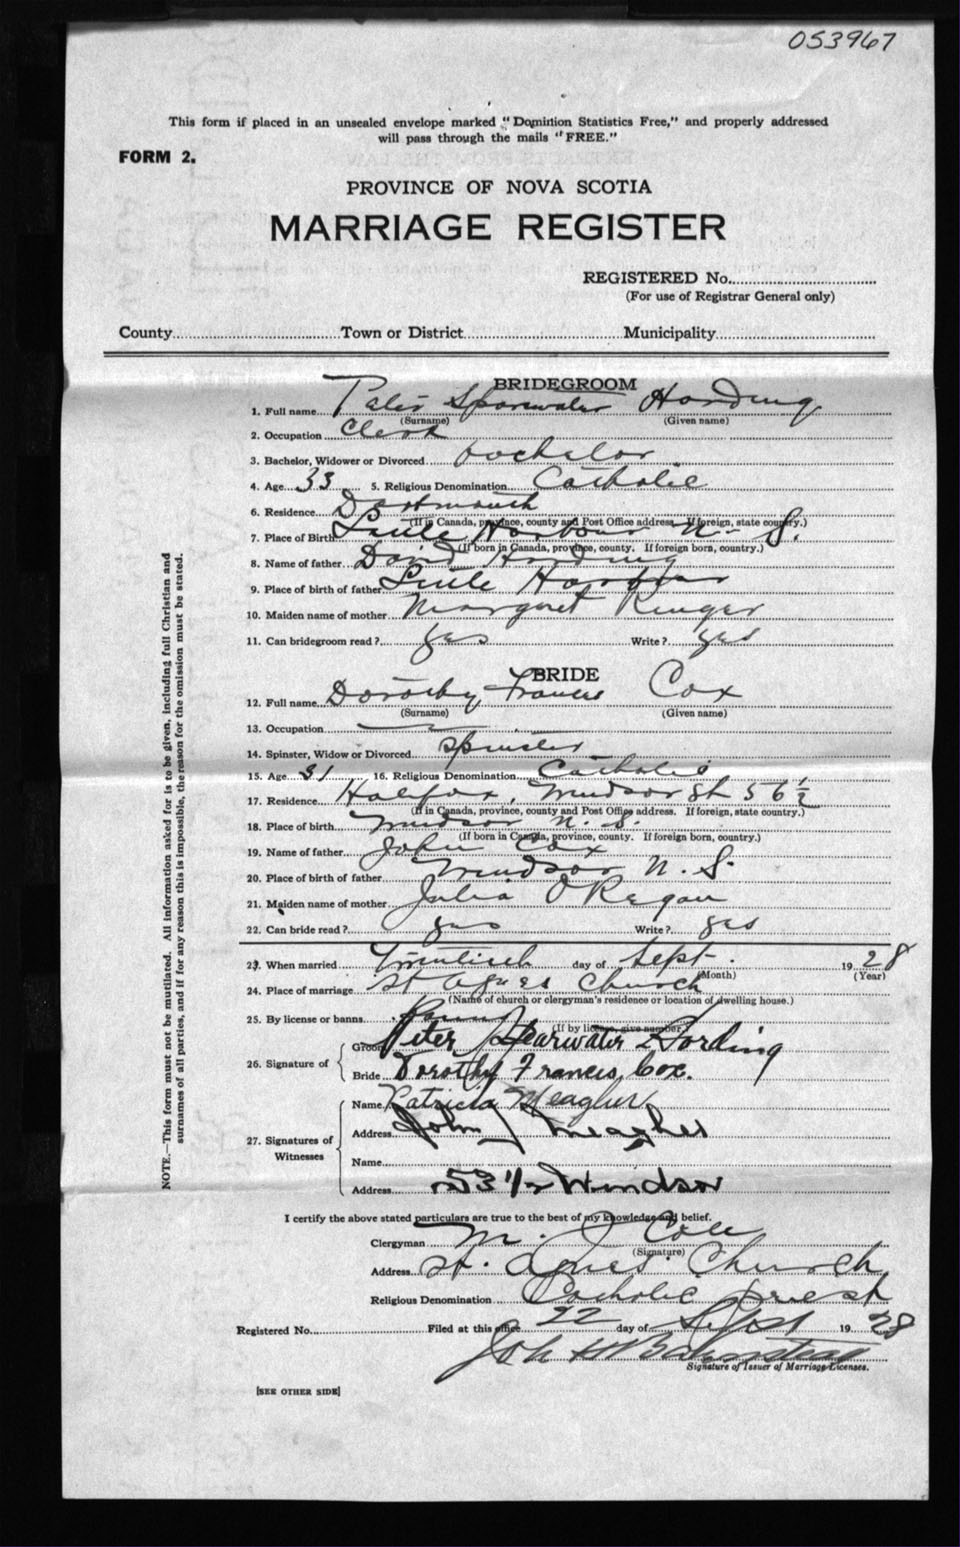 053967
This form if placed in an unsealed envelope marked "Dominion Statistics Free," and properly addressed
will pass through the mails "FREE."
FORM 2.
PROVINCE OF NOVA SCOTIA
MARRIAGE REGISTER
REGISTERED No.
(For use of Registrar General only)
County Town or District Municipality
BRIDEGROOM
1. Full name Peter Spearwater Harding
(Surname) (Given name)
2. Occupation Clerk
3. Bachelor, Widower or Divorced bachelor
4. Age 33 5. Religious Denomination Catholic
6. Residence Dartmouth
(If in Canada, province, county and Post Office address. If foreign, state country.)
7. Place of Birth Little Harbour N. S.
(If born in Canada, province, county. If foreign born, country.)
8. Name of father David Harding
9. Place of birth of father Little Harbour
10. Maiden name of mother Margaret Ringer
11. Can bridegroom read? yes Write? yes
BRIDE
12. Full name Dorothy Francis Cox
(Surname) (Given name)
13. Occupation
14. Spinster, Widow or Divorced spinster
15. Age 31 16. Religious Denomination Catholic
17. Residence Halifax, Windsor St 56 1/2
(If in Canada, province, county and Post Office address. If foreign, state country.)
18. Place of birth Windsor N. S.
(If born in Canada, province, county. If foreign born, country.)
19. Name of father John Cox
20. Place of birth of father Windsor N. S.
21. Maiden name of mother Julia O Regan
22. Can bride read? yes Write? yes
23. When married Twentieth day of Sept. 1928
(Month) (Year)
24. Place of marriage St Agnes Church
(Name of church or clergyman's residence or location of dwelling house.)
25. By license or banns
(If by license, give number.)
26. Signature of
Groom Peter Spearwater Harding
Bride Dorothy Francis Cox.
27. Signatures of Witnesses
Name Patricia Meagher
Address John J Meagher
Name
Address 53 1/2 Windsor
I certify the above stated particulars are true to the best of my knowledge and belief.
Clergyman M. J Cole
(Signature)
Address St. Agnes Church
Religious Denomination Catholic priest
Registered No. Filed at this office 22 day of Sept 1928
Signature of Issuer of Marriage Licenses.
[SEE OTHER SIDE]
NOTE.—This form must not be mutilated. All information asked for is to be given, including full Christian and
surnames of all parties, and if for any reason this is impossible, the reason for the omission must be stated.